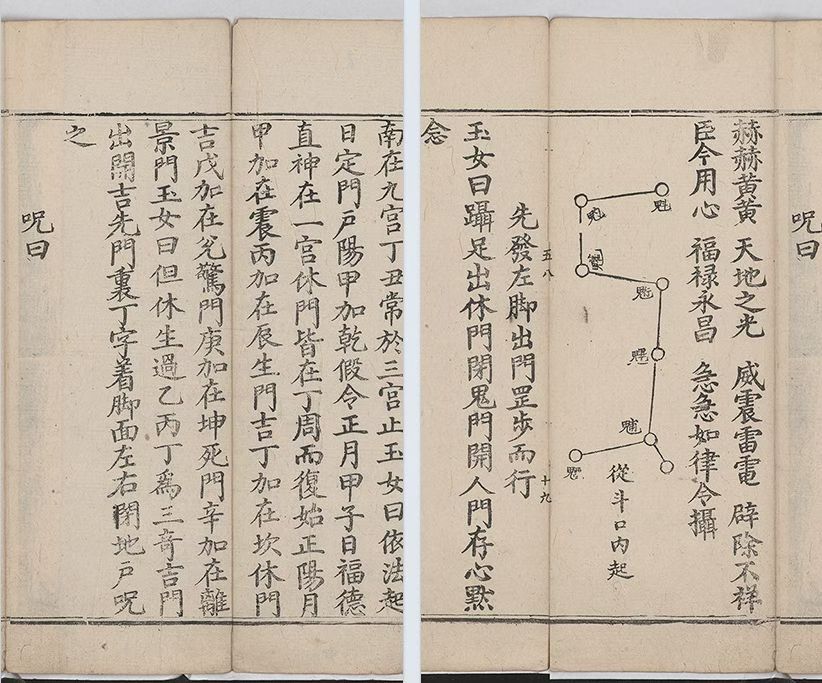 呪曰
赫赫黃黃 天地之光 威震雷電 辟除不祥
臣今用心 福禄永昌 急急如律令攝
從斗口内起
五八
十九
先發左脚出門罡步而行
玉女曰躡足出休門閉鬼門開人門存心黙
念
南在九宫丁丑常於三宫止玉女曰依法起
日定門戸陽甲加乾假令正月甲子日福德
直神在一宫休門皆在丁周而復始正陽月
甲加在震丙加在辰生門吉丁加在坎休門
吉戊加在兊驚門庚加在坤死門辛加在離
景門玉女曰但休生過乙丙丁爲三竒吉門
出開吉先門裏丁字着脚面左右閉地戸呪
之
呪曰